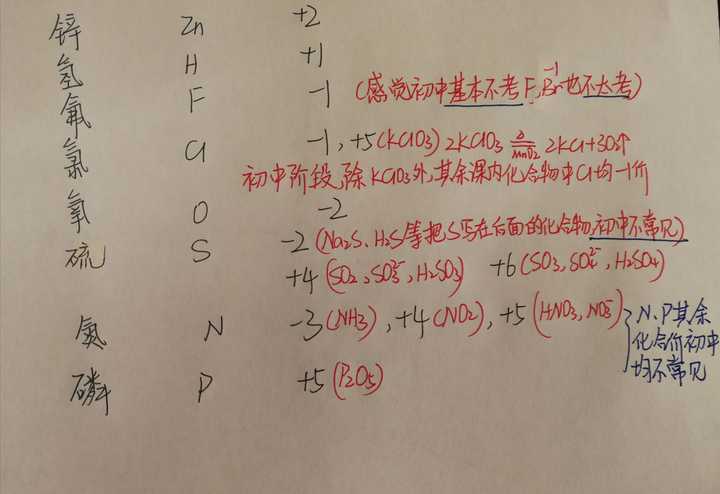 锌 Zn +2
氢 H +1
氟 F -1 (感觉初中基本不考F,Br⁻¹也不大考)
氯 Cl -1, +5(KClO3) 2KClO3 ≜MnO2 2KCl+3O2↑
初中阶段,除KClO3外,其余课内化合物中Cl均-1价
氧 O -2
硫 S -2 (Na2S、H2S等把S写在后面的化合物,初中不常见)
+4 (SO2, SO3²⁻, H2SO3) +6 (SO3, SO4²⁻, H2SO4)
氮 N -3(NH3), +4(NO2), +5(HNO3, NO3⁻)
N、P其余
化合价初中
均不常见
磷 P +5(P2O5)